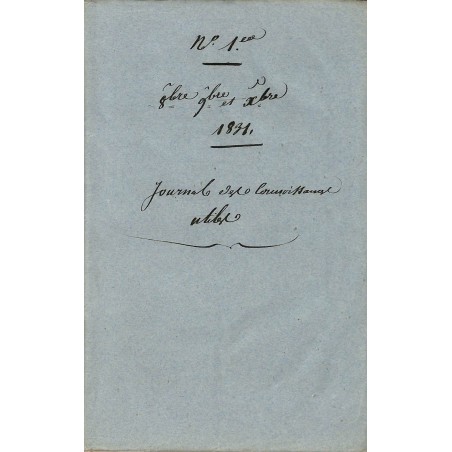 No 1.ere
8bre 9bre et Xbre
1831.
Journal des Connoissances
utiles